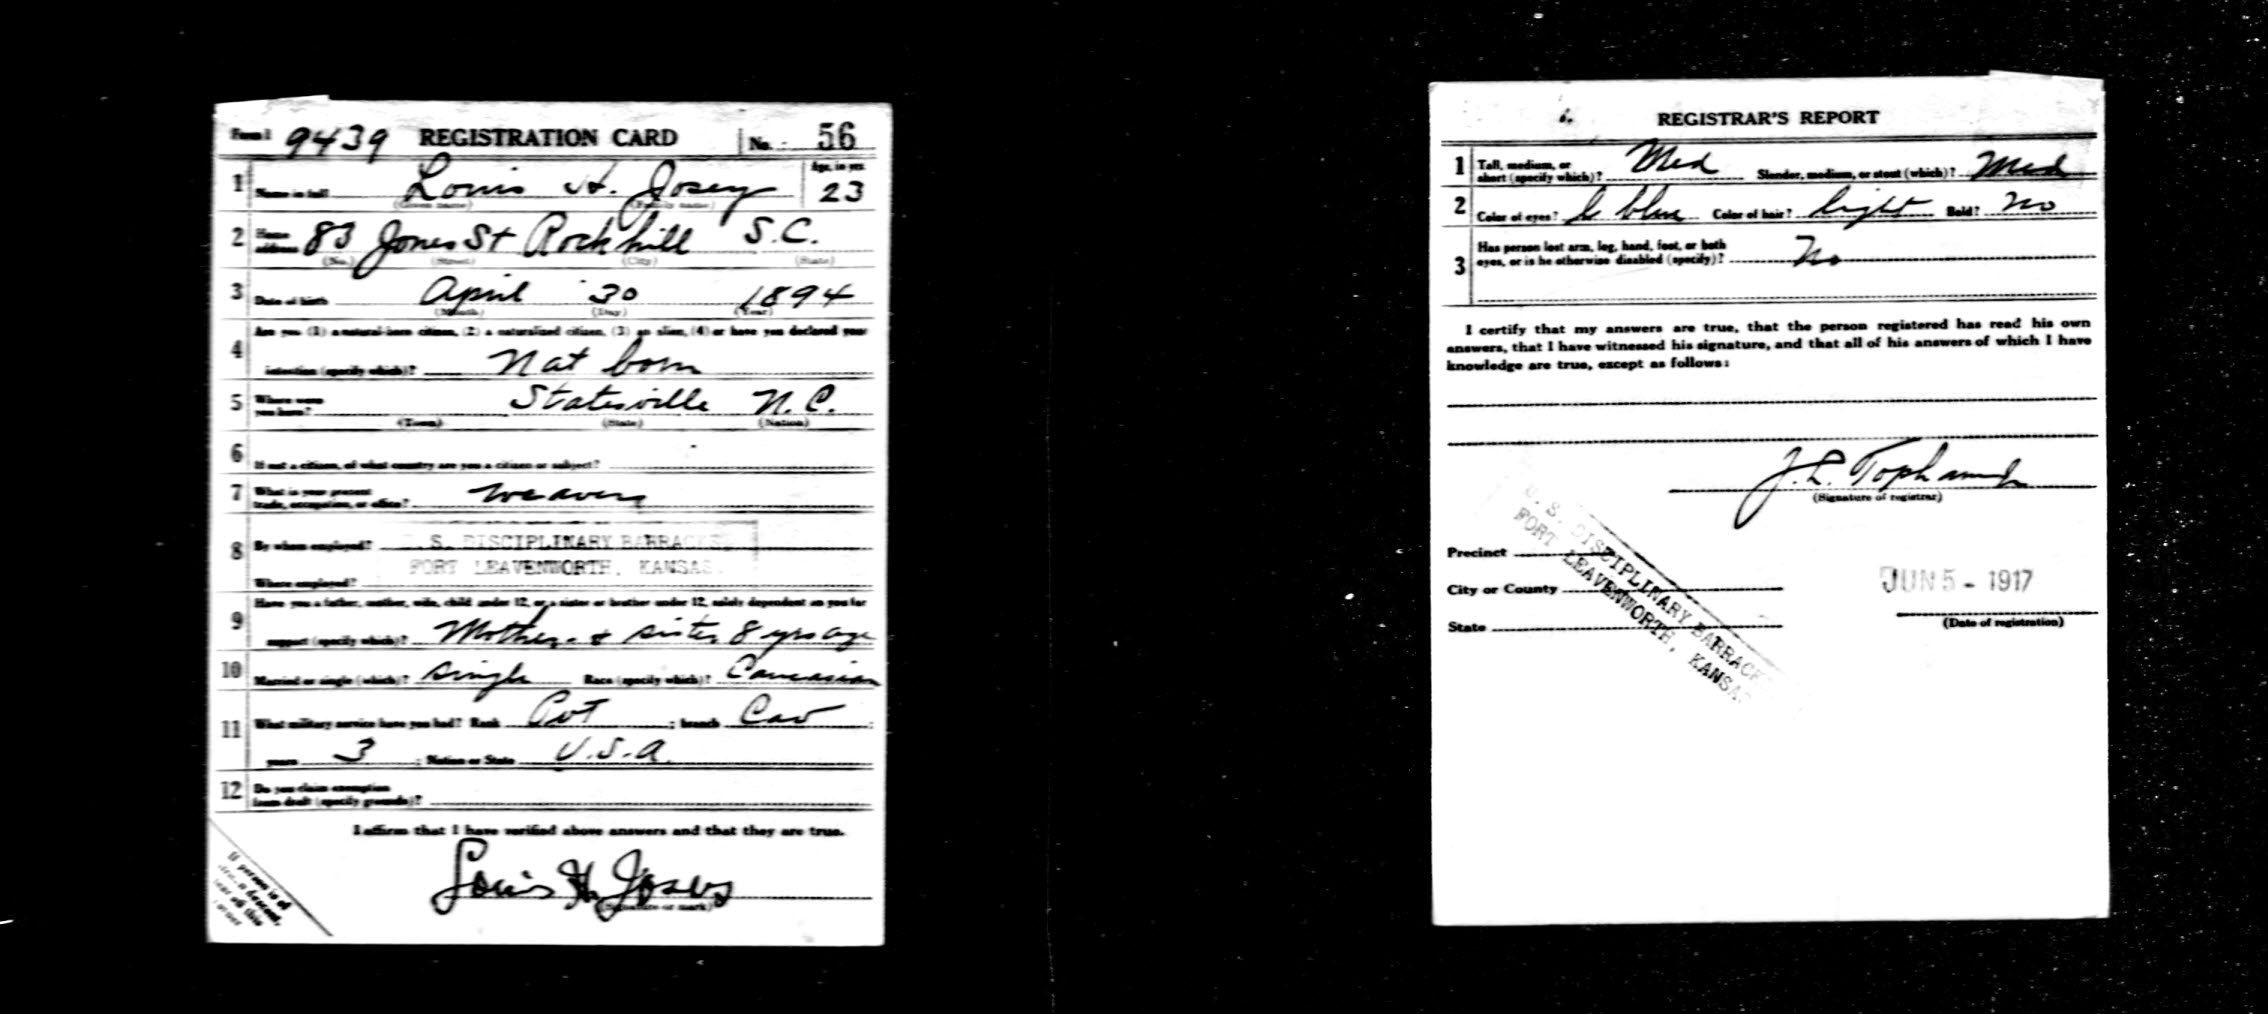 Form 1 9439 REGISTRATION CARD No. 56
1 Name in full Louis H. Josey Age, in yrs 23
(Given name) (Family name)
2 Home address 83 Jones St Rock hill S.C.
(No.) (Street) (City) (State)
3 Date of birth April 30 1894
(Month) (Day) (Year)
4 Are you (1) a natural-born citizen, (2) a naturalized citizen, (3) an alien, (4) or have you declared your
intention (specify which)? Nat born
5 Where were you born? Statesville N.C.
(Town) (State) (Nation)
6 If not a citizen, of what country are you a citizen or subject?
7 What is your present trade, occupation, or office? weaver
8 By whom employed? S. DISCIPLINARY BARRACKS,
Where employed? FORT LEAVENWORTH, KANSAS.
9 Have you a father, mother, wife, child under 12, or a sister or brother under 12, solely dependent on you for
support (specify which)? Mother & sister 8 yrs age
10 Married or single (which)? single Race (specify which)? Caucasian
11 What military service have you had? Rank Pvt ; branch Cav ;
years 3 ; Nation or State U.S.A.
12 Do you claim exemption
from draft (specify grounds)?
I affirm that I have verified above answers and that they are true.
Louis H. Josey
(Signature or mark)
If person is of
descent,
off this
corner
REGISTRAR'S REPORT
1 Tall, medium, or
short (specify which)? Med Slender, medium, or stout (which)? Med
2 Color of eyes? blue Color of hair? light Bald? No
3 Has person lost arm, leg, hand, foot, or both
eyes, or is he otherwise disabled (specify)? No
I certify that my answers are true, that the person registered has read his own
answers, that I have witnessed his signature, and that all of his answers of which I have
knowledge are true, except as follows:
J. L. Topham
(Signature of registrar)
U. S. DISCIPLINARY BARRACKS
FORT LEAVENWORTH, KANSAS.
Precinct
City or County
State
JUN 5 - 1917
(Date of registration)